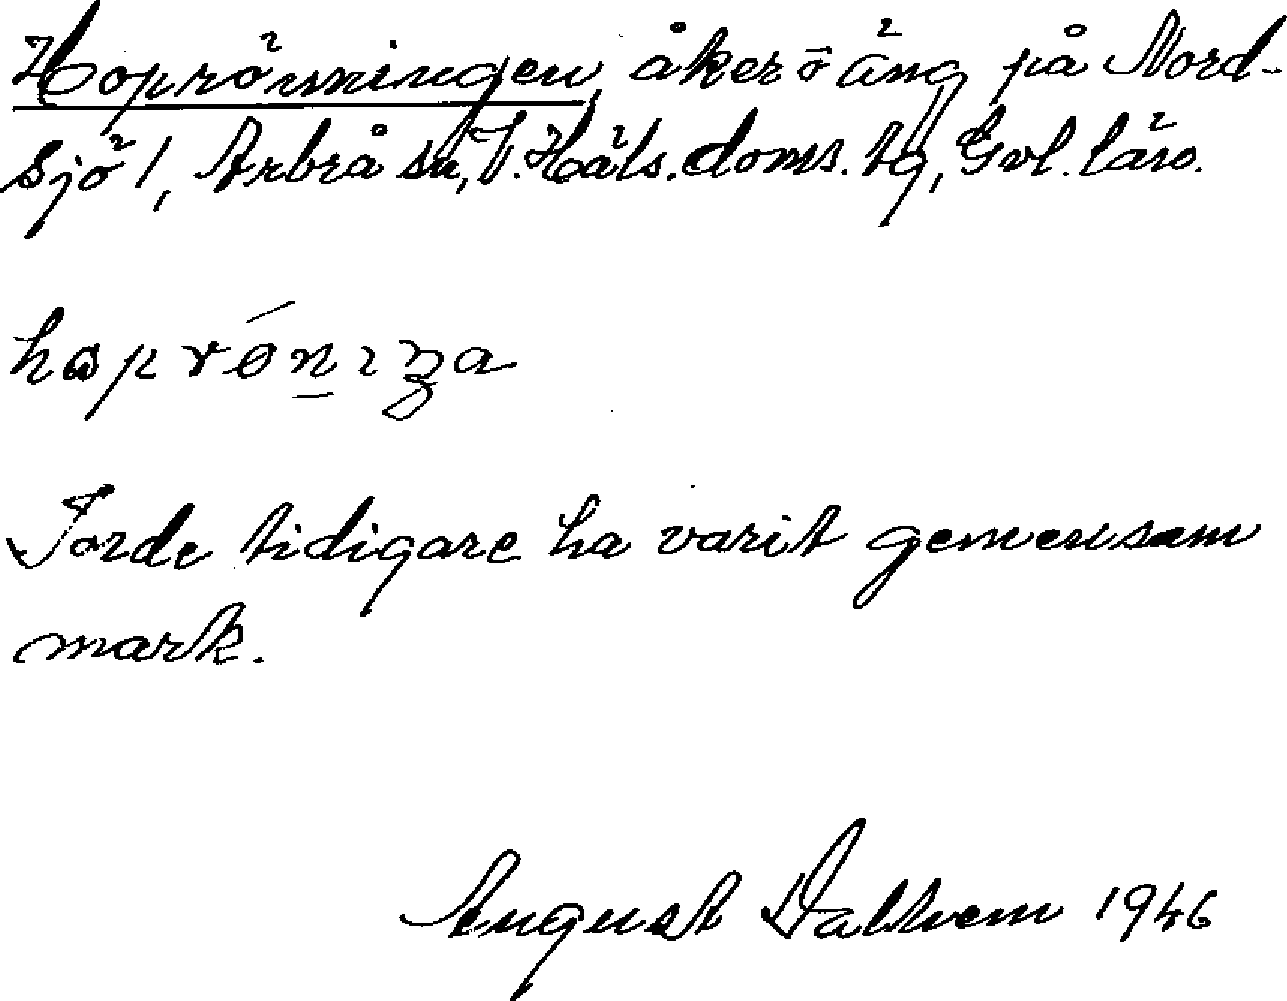 Hoprönningen, åker o äng på Nord-
sjö 1, Arbrå sn, V. Häls. doms. tg, Gvl. län.
Torde tidigare ha varit gemensam
mark.
August 1946